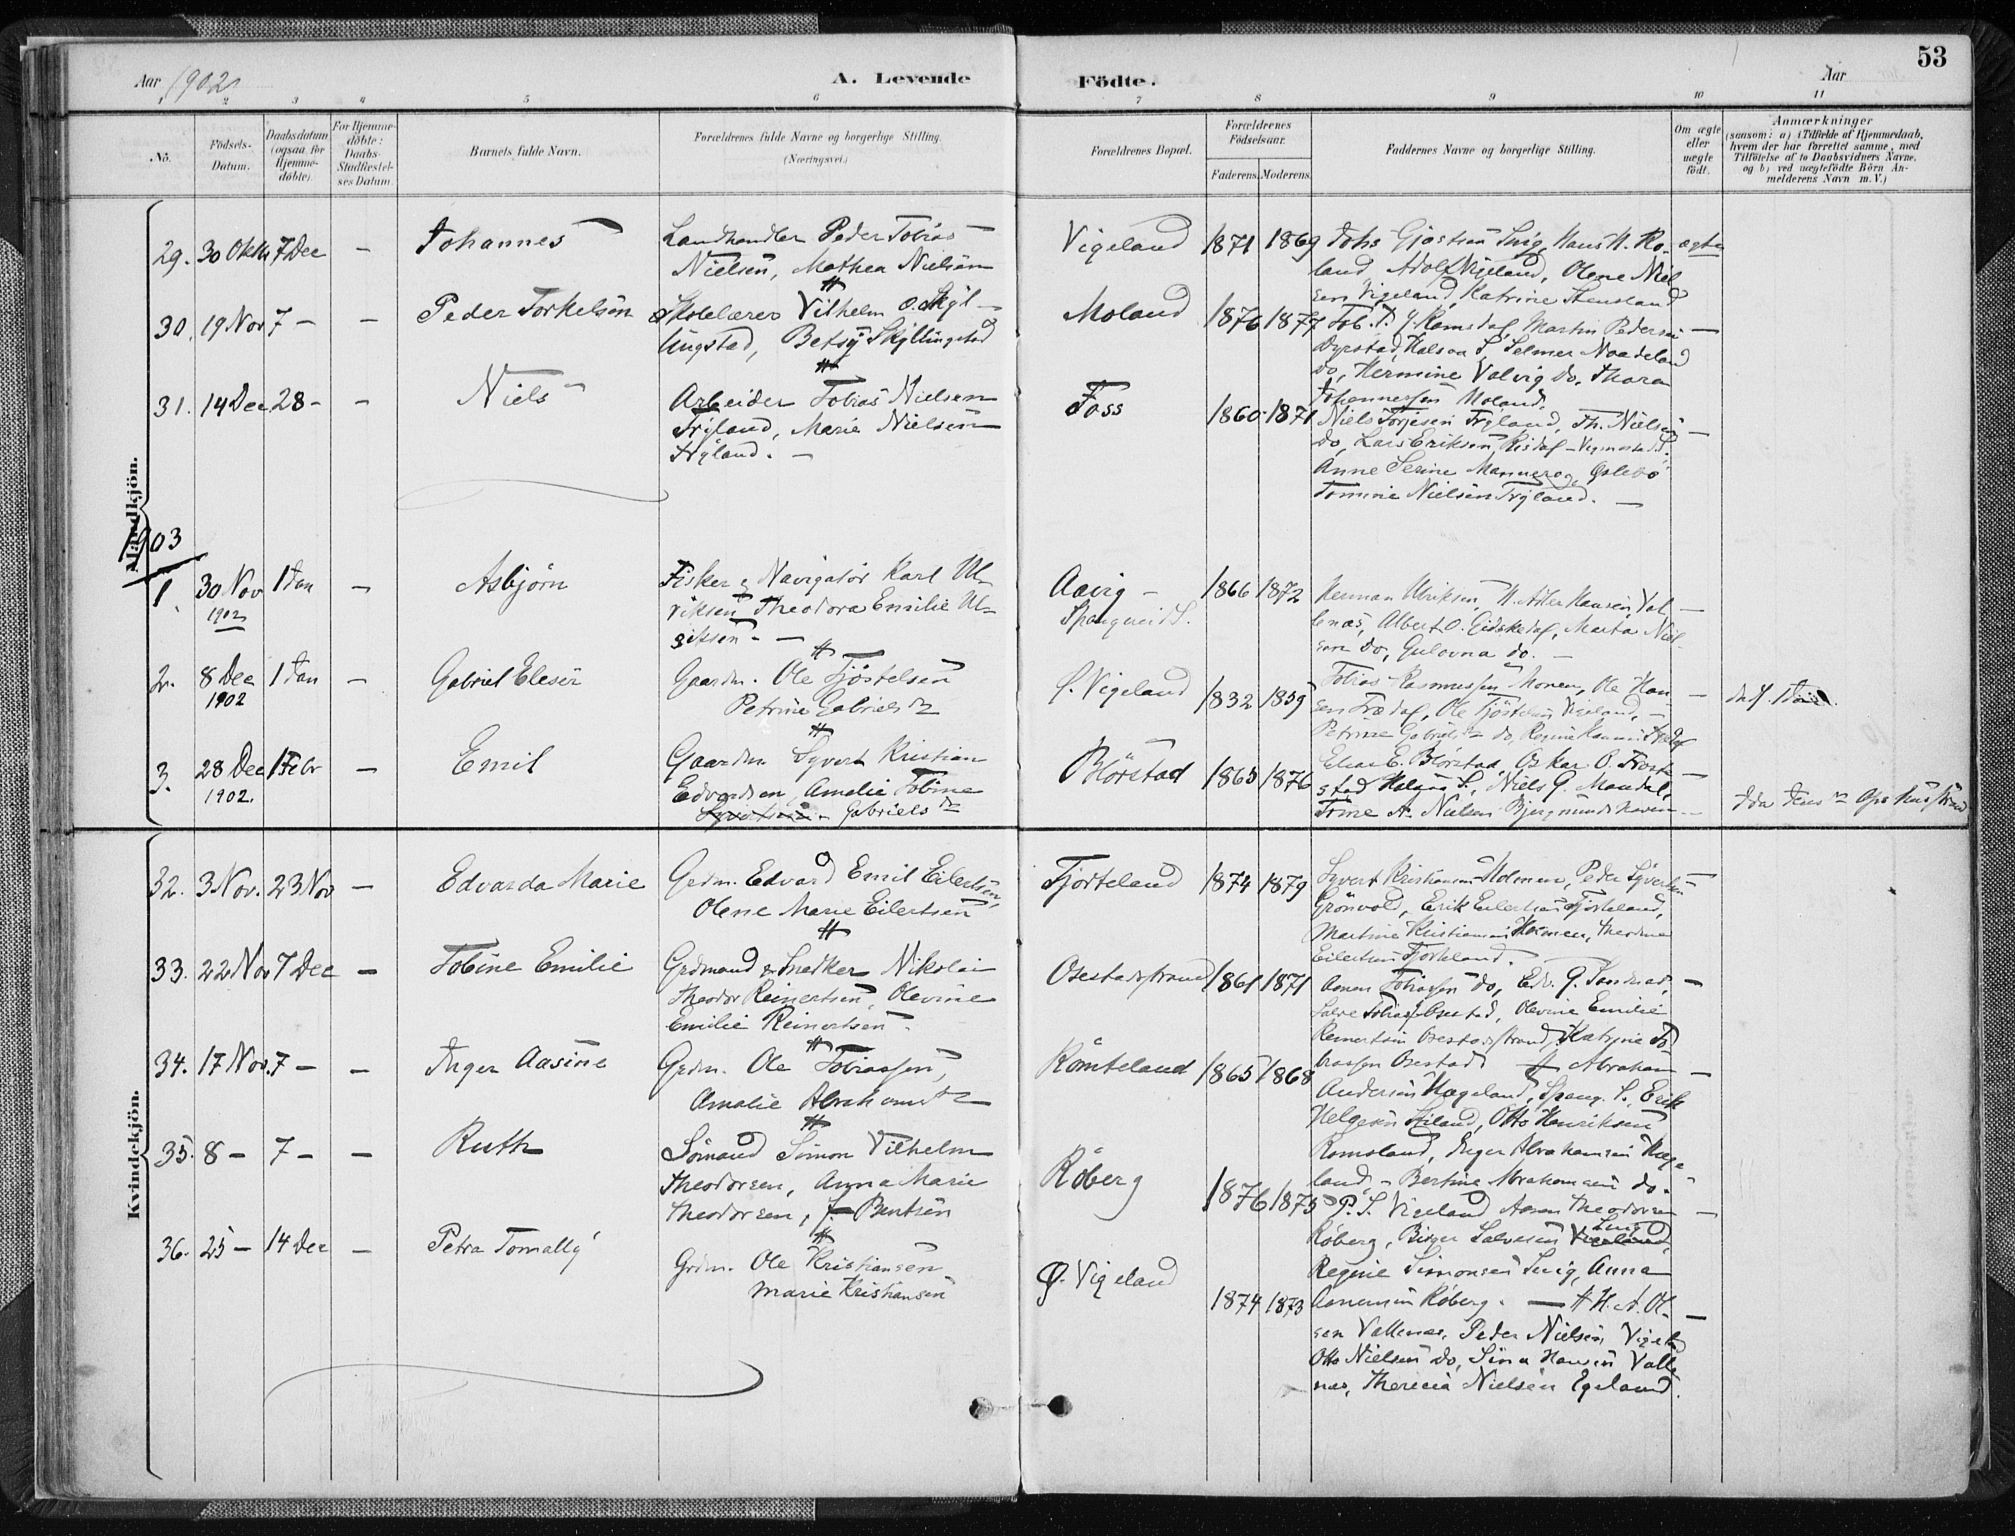 53
Aar 1902
A. Levende
Födte.
Aar
1 2 3 4 5 6 7 8 9 10 11
No.
Födsels-Datum.
Daabsdatum (ogsaa for Hjemme-döbte).
For Hjemme-döbte: Daabs-Stadfæstel-ses Datum.
Barnets fulde Navn.
Forældrenes fulde Navne og borgerlige Stilling.
(Næringsvei.)
Forældrenes Bopæl.
Forældrenes Födselsaar.
Faderens. Moderens.
Faddernes Navne og borgerlige Stilling.
Om ægte eller uægte födt.
Anmærkninger
(saasom: a) i Tilfælde af Hjemmedaab,
hvem der har forrettet samme, med
Tilföielse af to Daabsvidners Navne,
og b) ved uægtefödte Börn An-
melderens Navn m. V.)
Mandkjön.
29. 30 Okt 7 Dec - Johannes
Landhandler Peder Tobias
Nielsen, Mathea Nielsen
Vigeland 1871 1869
land, Adolf Vigeland, Olene Niel
sen Vigeland, Katrine Stensland
ægte
30. 19 Nov 7 - - Peder Torkelsen
Skolelærer Vilhelm O. Skyl-
lingstad, Betsy Skyllingstad
Moland 1876 1877
Tob. T. Y. Ramsdal, Martin Pedersen -
Dyrstad, Halsaa S, Selmer Noodeland
do, Hermine Valvig do, Thora
Johannessen Moland.
31. 14 Dec 28 - - Niels
Arbeider Tobias Nielsen
Tryland, Marie Nielsen
Tryland. -
Foss 1860 1871
Niels Torjesen Tryland, Th. Nielsen -
do, Lars Eriksen, Risdal - Vegmostad S.
Anne Serine Mannerog, Öslebö
Tomine Nielsen Tryland. -
1903
1. 30 Nov 1902 1 Jan - Asbjørn
Fisker & Navigatør Karl Ul-
riksen, Theodora Emilie Ul-
riksen. -
Aavig -
Spangereid S.
1866 1872
Herman Ulriksen, H. Adler Hansen Val -
lenæs, Albert O. Eidskedal, Marta Niel-
sen do, Gulovna do. -
2. 8 Dec 1902 1 Jan - Gabriel Eleser
Gaardm. Ole Tjöstelsen
Petrine Gabrielsdr
Ö. Vigeland 1832 1859
Tobias Rasmussen Monen, Ole Han- -
sen Trædal, Ole Tjöstelsen Vigeland, -
Petrine Gabrielsdr do,
3. 28 Dec 1902. 1 Febr - Emil
Gaardm Syvert Kristian
Edvardsen, Amalie Tobine
Gabrielsdr
Blörstad 1865 1876
Elias E. Blörstad, Oskar O. Frost- -
stad Halsaa S., Niels G. Mandal,
Trine A. Nielsen Bjergmundshavn -
Kvindekjön.
32. 3 Nov. 23 Nov - Edvarda Marie
Grdm. Edvard Emil Eilertsen,
Olene Marie Eilertsen
Fjorteland 1874 1879
Syvert Kristiansen Holmen, Peder Syvertsen -
Grönvold, Erik Eilertsen Fjorteland,
Martine Kristiansen Holmen, Theodine
Eilertsen Fjorteland. -
33. 22 Nov 7 Dec - Tobine Emilie
Grdmand & Snedker Nikolai
Theodor Reinertsen, Olevine
Emilie Reinertsen.
Osestadstrand 1861 1871
Aanen Tobiassen do,
Salve Tobias. Osestad, Olevine Emilie
Reinertsen Osestadstrand, Katrine To-
biassen Osestad
34. 17 Nov. 7 - - Inger Aasine
Grdm. Ole Tobiassen,
Amalie Abrahamsdr
Römteland 1865 1868
Abraham -
Andersen Hægeland, Spang. S., Erik
Helgesen Stiland, Otto Henriksen
Romsland, Inger Abrahamsen Hæge
land, - Bertine Abrahamsen do. -
35. 8 - 7 - - Ruth
Sömand Simon Vilhelm
Theodorsen, Anna Marie
Theodorsen, f. Bentsen
Röberg 1876 1875
P. S. Vigeland Aanen Theodorsen -
Röberg, Birger Salvesen Vigeland,
Regine Simonsen Svig, Anna
Aanensen Röberg. -
36. 25 - 14 Dec - Petra Tomally
Grdm. Ole Kristiansen
Marie Kristiansen
Ö. Vigeland
1874 1873
H. A. Ol- -
sen Vallenæs, Peder Nielsen Vigeland
Otto Nielsen do, Sina Hansen Valle
næs, Theresia Nielsen Egeland.